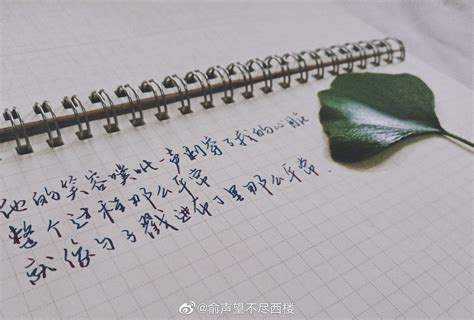 她的笑容噗呲一声刺穿了我的心脏
整个过程那么平常
就像勺子戳进布丁里那么平常
@俞声望不尽西楼